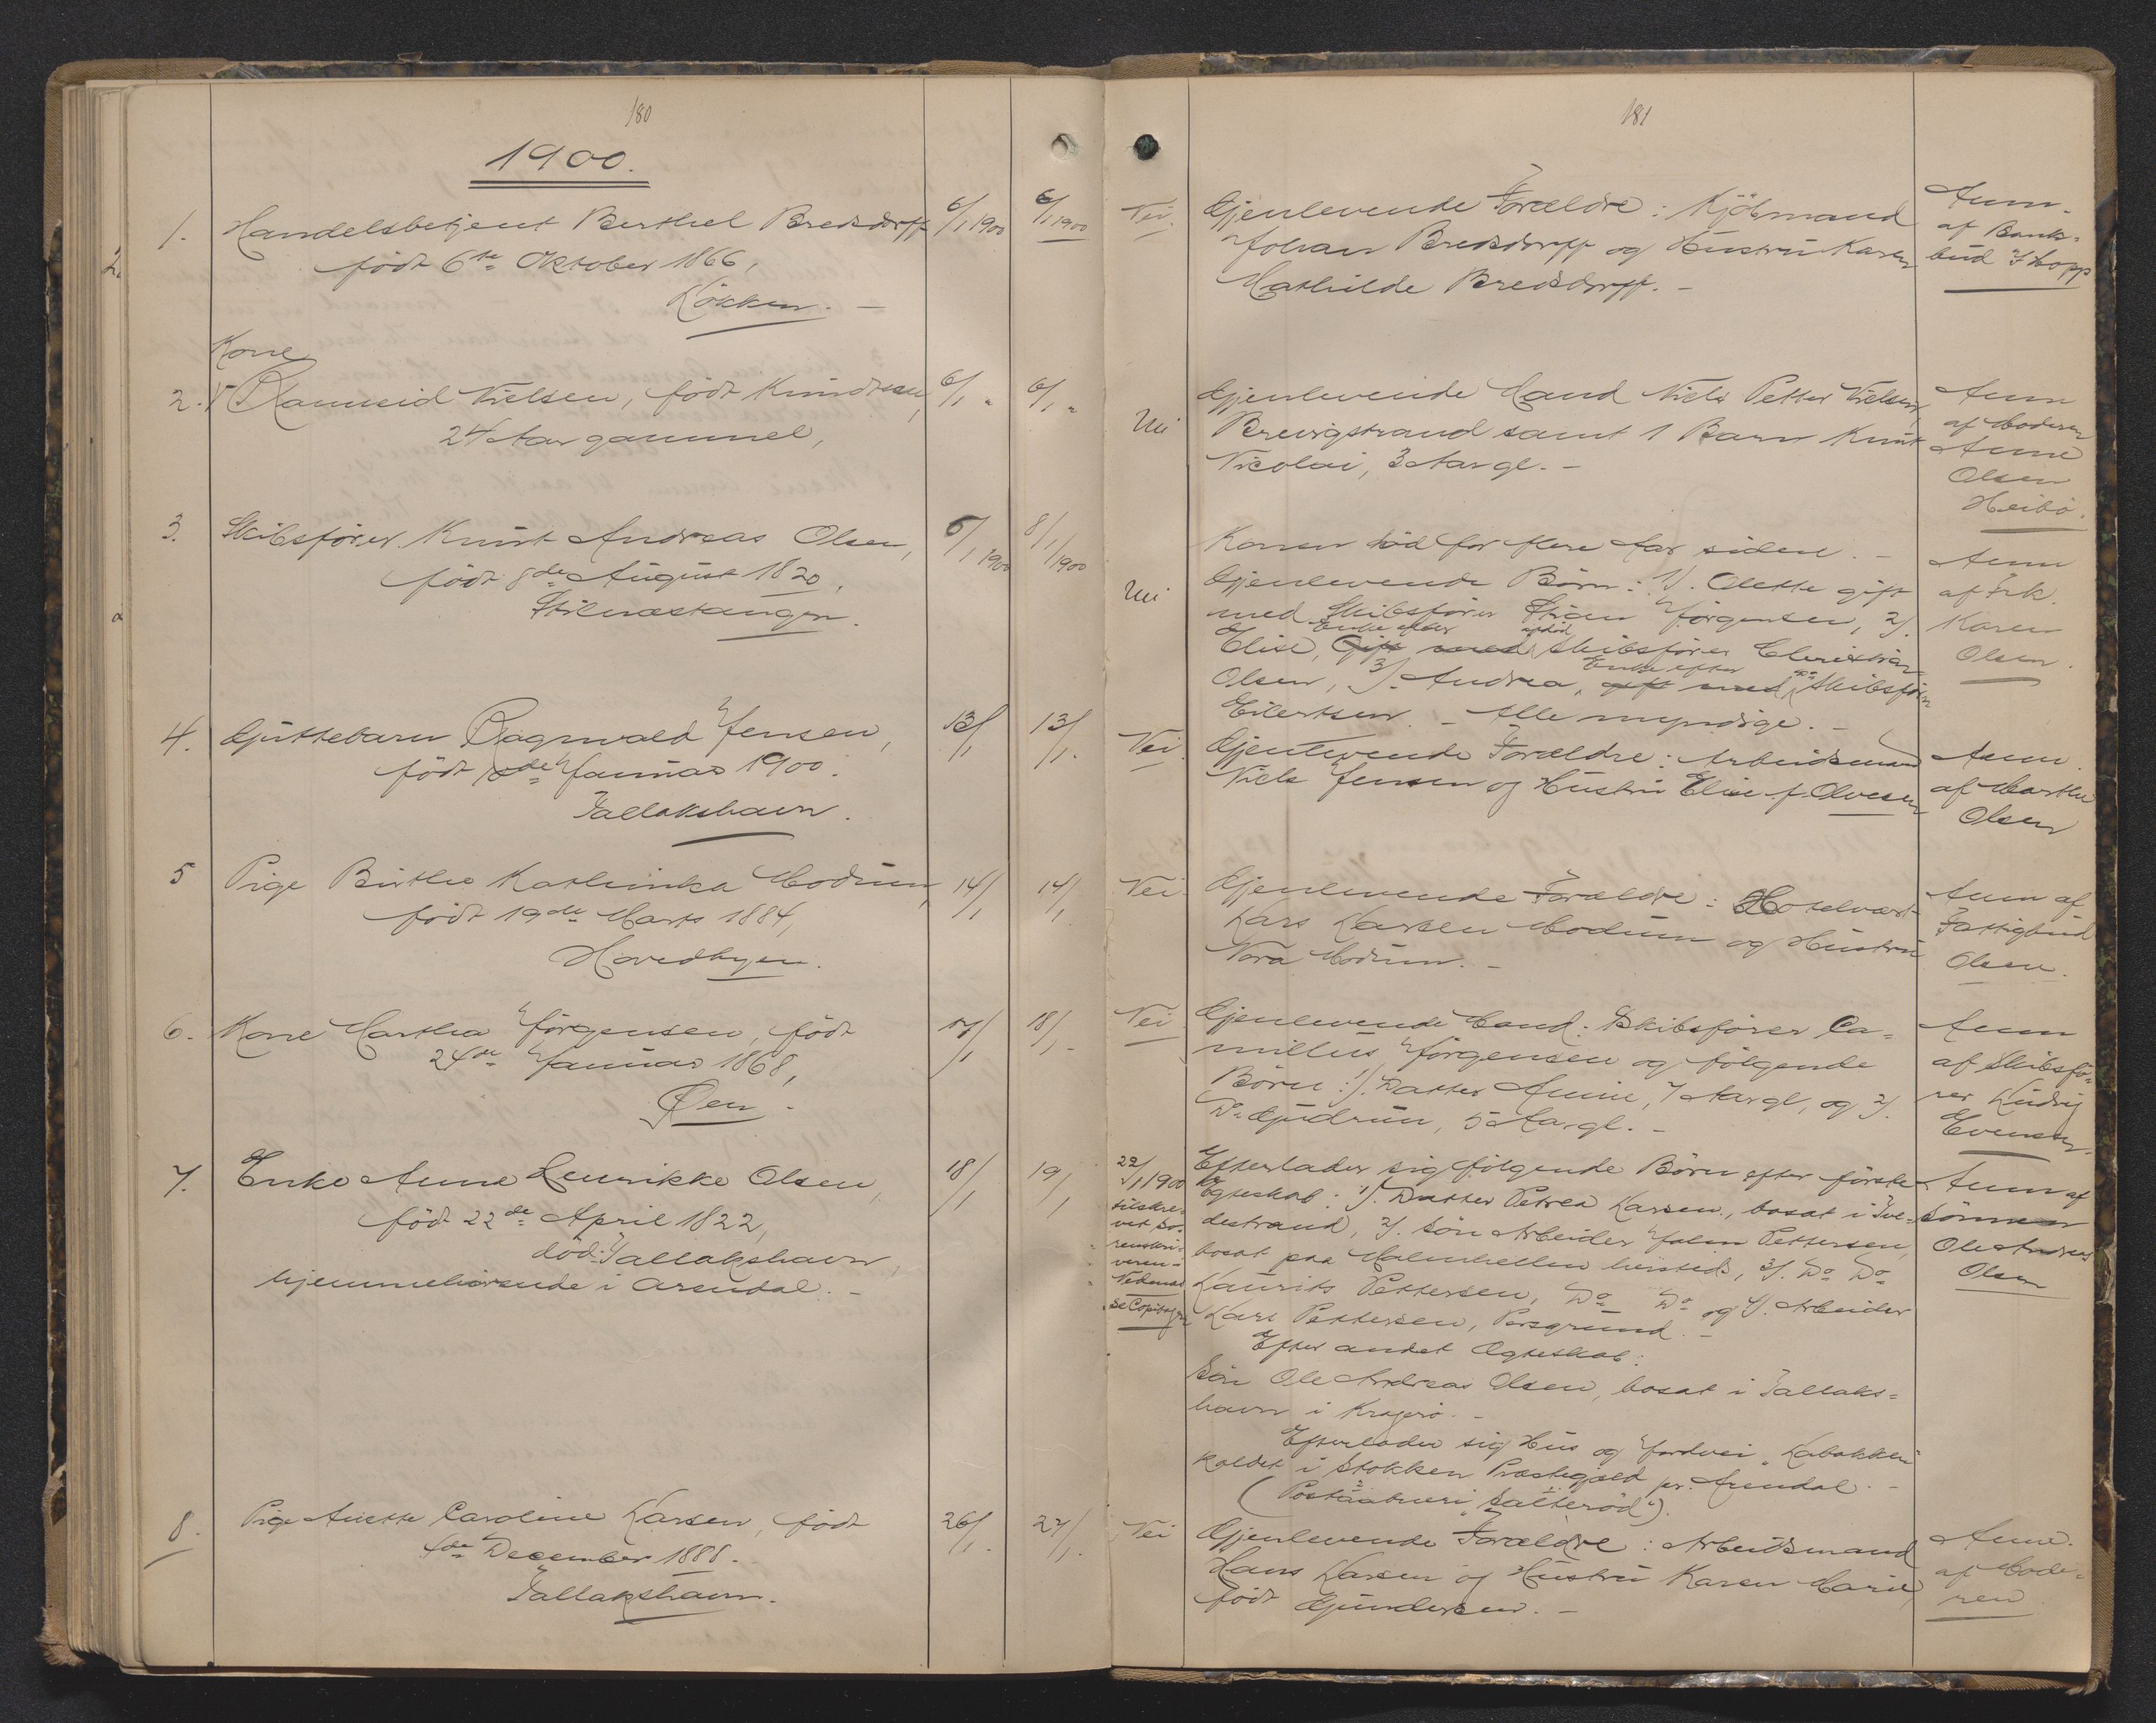 180
1900.
1. Handelsbetjent Berthel Bredsdorff 6/1 1900 6/1 1900
født 6te Oktober 1866,
Løkken. –
Kone
2. Ragnheid Nielsen, født Knudtsen, 6/1 " 6/1 "
24 Aar gammel,
3. Skibsfører Knut Andreas Olsen, 5/1 1900 8/1 1900
født 8de August 1820,
Stilnæstangen.
4. Guttebarn Ragnvald Jensen, 13/1 13/1.
født de Januar 1900.
Tallakshavn.
5 Pige Birthe Kathinka Modum, 14/1 14/1
født 19de Marts 1884,
Hovedbyen.
6. Kone Martha Jørgensen, født 17/1 18/1
24de Januar 1868,
Øen.
7. Enke Anne Lenrikke Olsen, 18/1 19/1
født 22de April 1822,
død: Tallakshavn,
hjemmehørende i Arendal. –
8. Pige Anette Caroline Larsen, født 26/1. 27/1.
4de December 1888.
Tallakshavn.
181
Nei. Gjenlevende Forældre: Kjøbmand
Johan Bredsdorff og Hustru Karen
Mathilde Bredsdorff. –
Anm.
af Bank=
bud Stopp
Gjenlevende Mand Niels Petter Nielsen,
Brevigstrand samt 1 Barn Knut
Nicolai, 3 Aar gl. –
Anm
af Moderen
Anne
Olsen
Heibø.
Konen død for flere Aar siden. –
Gjenlevende Børn: 1). Olette gift
med Skibsfører Stian Jørgensen, 2).
Enke efter afdød
Elise, Gift med Skibsfører Christian
Enke efter do
Olsen, 3). Andrea, gift med Skibsfører
Eilertsen. – Alle myndige. –
Anm
af Frk.
Karen
Olsen.
Nei. Gjenlevende Forældre: Arbeidsmand
Niels Jensen og Hustru Elise f. Olvesen
Anm.
af Marthe
Olsen
Nei. Gjenlevende Forældre: Hotelvært
Lars Larsen Modum og Hustru
Nora Modum. –
Anm af
Fattigbud
Olsen.
Nei. Gjenlevende Mand: Skibsfører Ca=
millus Jørgensen og følgende
Børn: 1). Datter Annie, 7 Aar gl, og 2).
Do Gudrun, 5 Aar gl. –
Anm
af Skibsfø=
rer Ludvig
Evensen.
22/1 1900
tilskre=
vet So=
renskri=
veren =
Nedenæs
Se Copibogen
Efterlader sig følgende Børn efter første
Egteskab: 1). Datter Petrea Larsen, bosat i Tve=
destrand, 2). Søn Arbeider Johan Pettersen,
bosat paa Malmhellen hersteds, 3). Do Do
Laurits Pettersen, Do Do og 4). Arbeider
Lars Pettersen, Porsgrund. –
Efter andet Ægteskab:
Søn Ole Andreas Olsen, bosat i Tallaks=
havn i Kragerø. –
Efterlader sig Hus og Jordvei "Labakken"
kaldet i Stokken Præstegjæld pr. Arendal. –
(Postaabneri "Salterød").
Anm af
Sønnen
Ole Andreas
Olsen
Nei Gjenlevende Forældre: Arbeidsmand
Hans Larsen og Hustru Karen Marie
født Gundersen. –
Anm.
af Mode=
ren